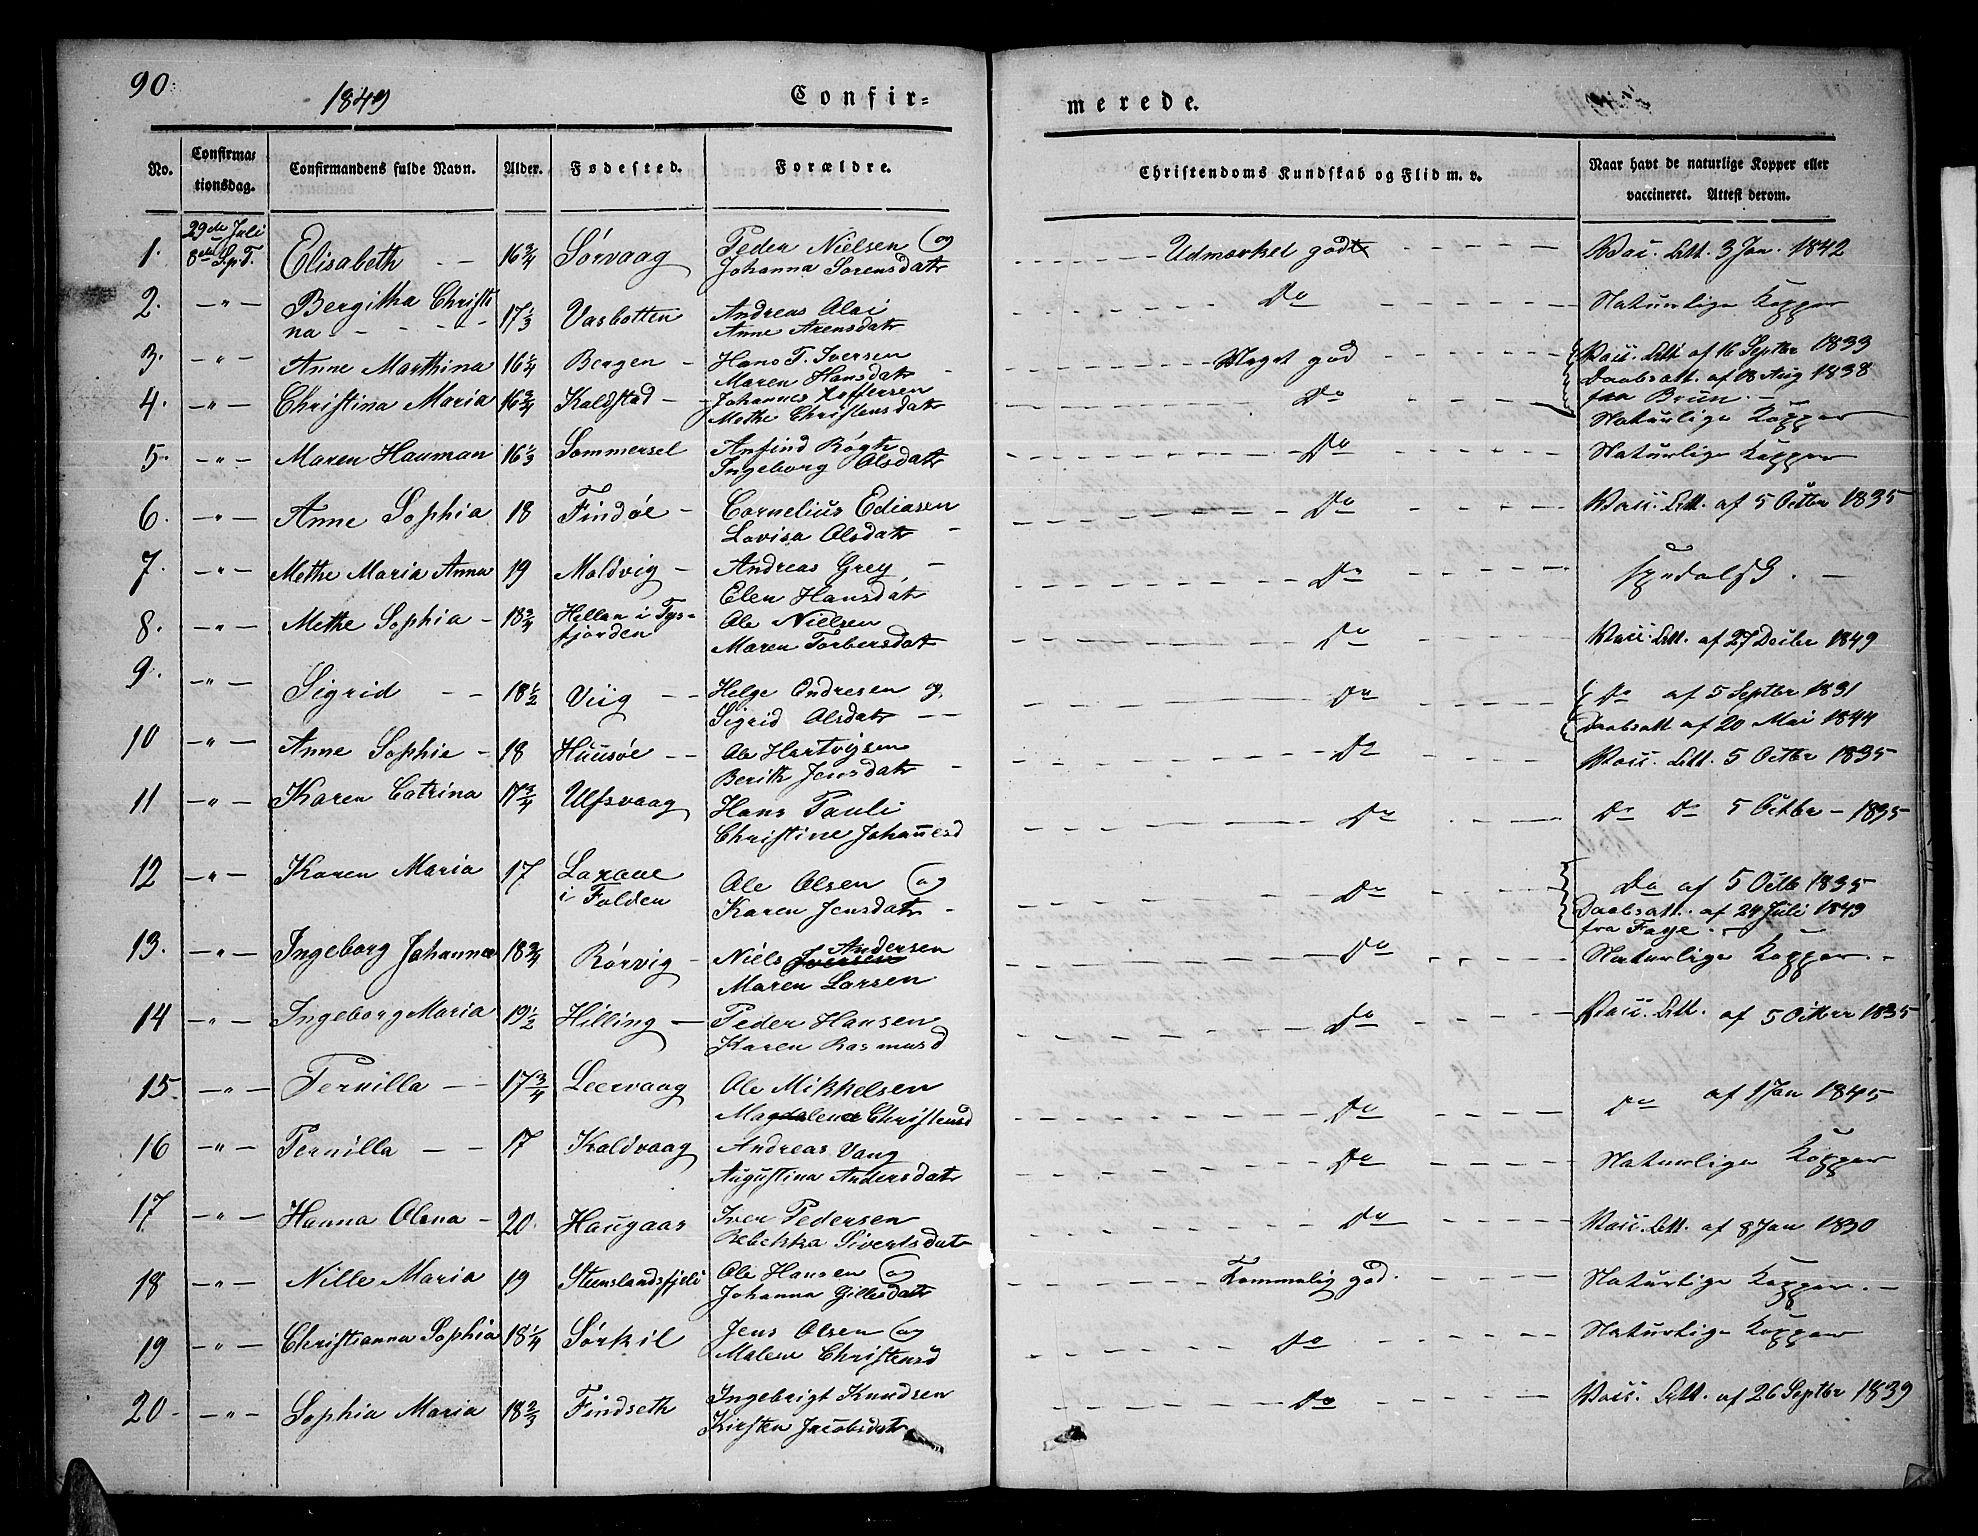 90.
1849
Confir-
merede.
No.
Confirma-
tionsdag.
Confirmandens fulde Navn.
Alder.
Fødested.
Forældre.
Christendoms Kundskab og Flid m. v.
Naar havt de naturlige Kopper eller
vaccineret. Attest derom.
29de Juli
8de Spt.
1. Elisabeth - - 16 3/4 Sørvaag Peder Nielsen og Udmærket godt Vacc. Att. 3 Jan. 1842
Johanna Sorensdatr
2. - " - Bergitha Christi Andreas Olai Do Naturlige Kopper
na - - - - - 17 1/3 Vasbotten Anne Arensdatr
3. - " - Anne Marthina 16 1/4 Bergen - Hans T. Iversen Meget god Vacc. Att af 16 Septbr 1833
Maren Hansdatr Daabsatt. af 18 Aug 1838
fra Brun. -
4. - " - Christina Maria 16 3/4 Kaldstad - Johannes Do Naturlige Kopper
Methe Christensdatr
5. - " - Maren Hauman 16 1/3 Sommersel Anfind Røgh Do Naturlige Kopper
Ingeborg Olsdatr
6. - " - Anne Sophia 18 Findøe - Cornelius Ediasen Do Vacc. Att. af 5 Octbr 1835
Lovisa Olsdatr -
7. - " - Methe Maria Anna 19 Maldvig - Andreas Grey - Do Spedalsk. -
Elen Hansdat
8. - " - Methe Sophia - 18 3/4 Hellan i Tys- Ole Nielsen Do Vacc. Att. af 27 Decbr 1849
fjorden Maren Torbersdatr
9. - " - Sigrid - - 18 1/2 Viig - - Helge Andresen og Do Do af 5 Septbr 1831
Sigrid Olsdatr - - Daabsatt af 20 Mai 1844
10 - " - Anne Sophie - 18 Huusøe - - Ole Hartvigsen Do Vacc. Att. 5 Octbr 1835
Berith Jensdatr -
11 - " - Karen Catrina 17 3/4 Ulfsvaag Hans Pauli Do Do Do 5 Octbr - 1835
Christine Johannesd
12 - " - Karen Maria 17 Laxaae Ole Olsen og Do Do af 5 Octb 1835
i Folden Karen Jensdatr - Daabsatt. af 24 Juli 1849
fra Faye.
13. - " - Ingeborg Johanna 18 3/4 Rørvig - Niels Iversen Andersen Do Naturlige Kopper. -
Maren Larsen
14 - " - Ingeborg Maria 19 1/2 Hilling - Peder Hansen Do Vacc. Att. af 5 Octbr 1835
Karen Rasmusd
15. - " - Pernilla - - 17 3/4 Leervaag Ole Mikkelsen Do Do af 1 Jan 1845
Magdalena Christensd
16 - " - Pernilla - - 17 Kaldvaag Andreas Vang Do Naturlige Kopper
Augustina Andersdatr
17 - " - Hanna Olena - 20. Haugaas Iver Pedersen Do Vacc. Att. af 8 Jan 1830
Rebekka Sivertsdatr
18 - " - Nille Maria 19 Steenslandsfjeli Ole Hansen og Temmelig god. Naturlige Kopper. -
Johanna Gillesdatr
19 - " - Christianna Sophia 18 1/4 Sørkil Jens Olsen og Do Naturlige Kopper
Malene Christensd
20 - " - Sophia Maria 18 2/3 Findseth Ingebrigt Knudsen Do Vacc. Att. af 26 Septbr 1839
Kirsten Jacobsdatr